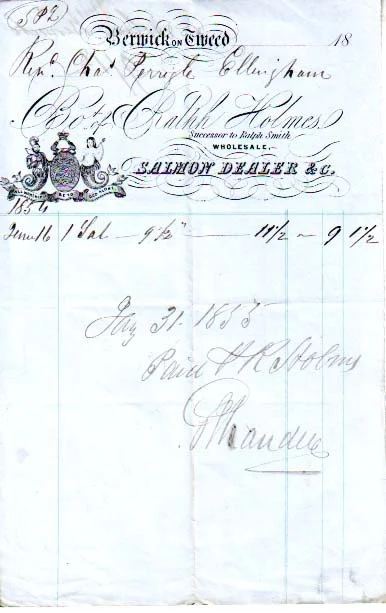 Berwick on Tweed 18
Revd. Chas. Perrigte Ellingham
Bot. of Ralph Holmes
Successor to Ralph Smith
WHOLESALE,
SALMON DEALER &C.
1854
June 16 1 Sal 9 1/2" 11 1/2 9 1 1/2
Jany 31 - 1855
Paid R Holmes